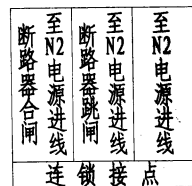 断路器合闸
至N2电源进线
断路器跳闸
至N2电源进线
至N2电源进线
连锁接点